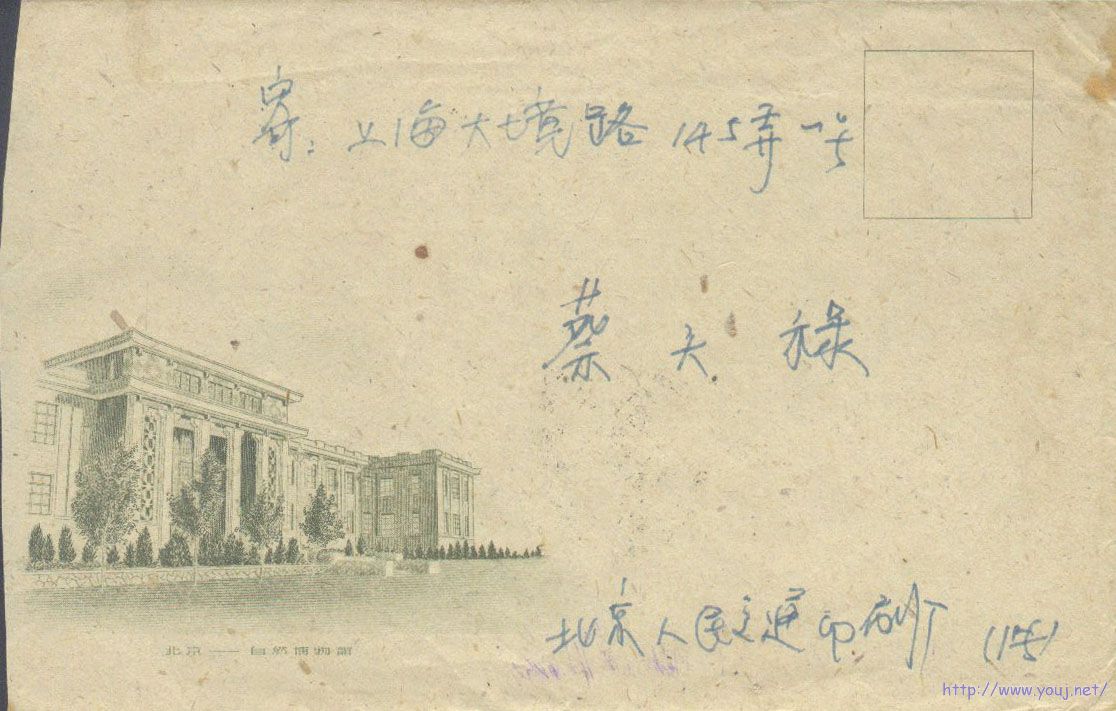 寄：上海大境路145弄一号
蔡天禄
北京人民交通印刷厂
北京——自然博物館
http://www.youj.net/